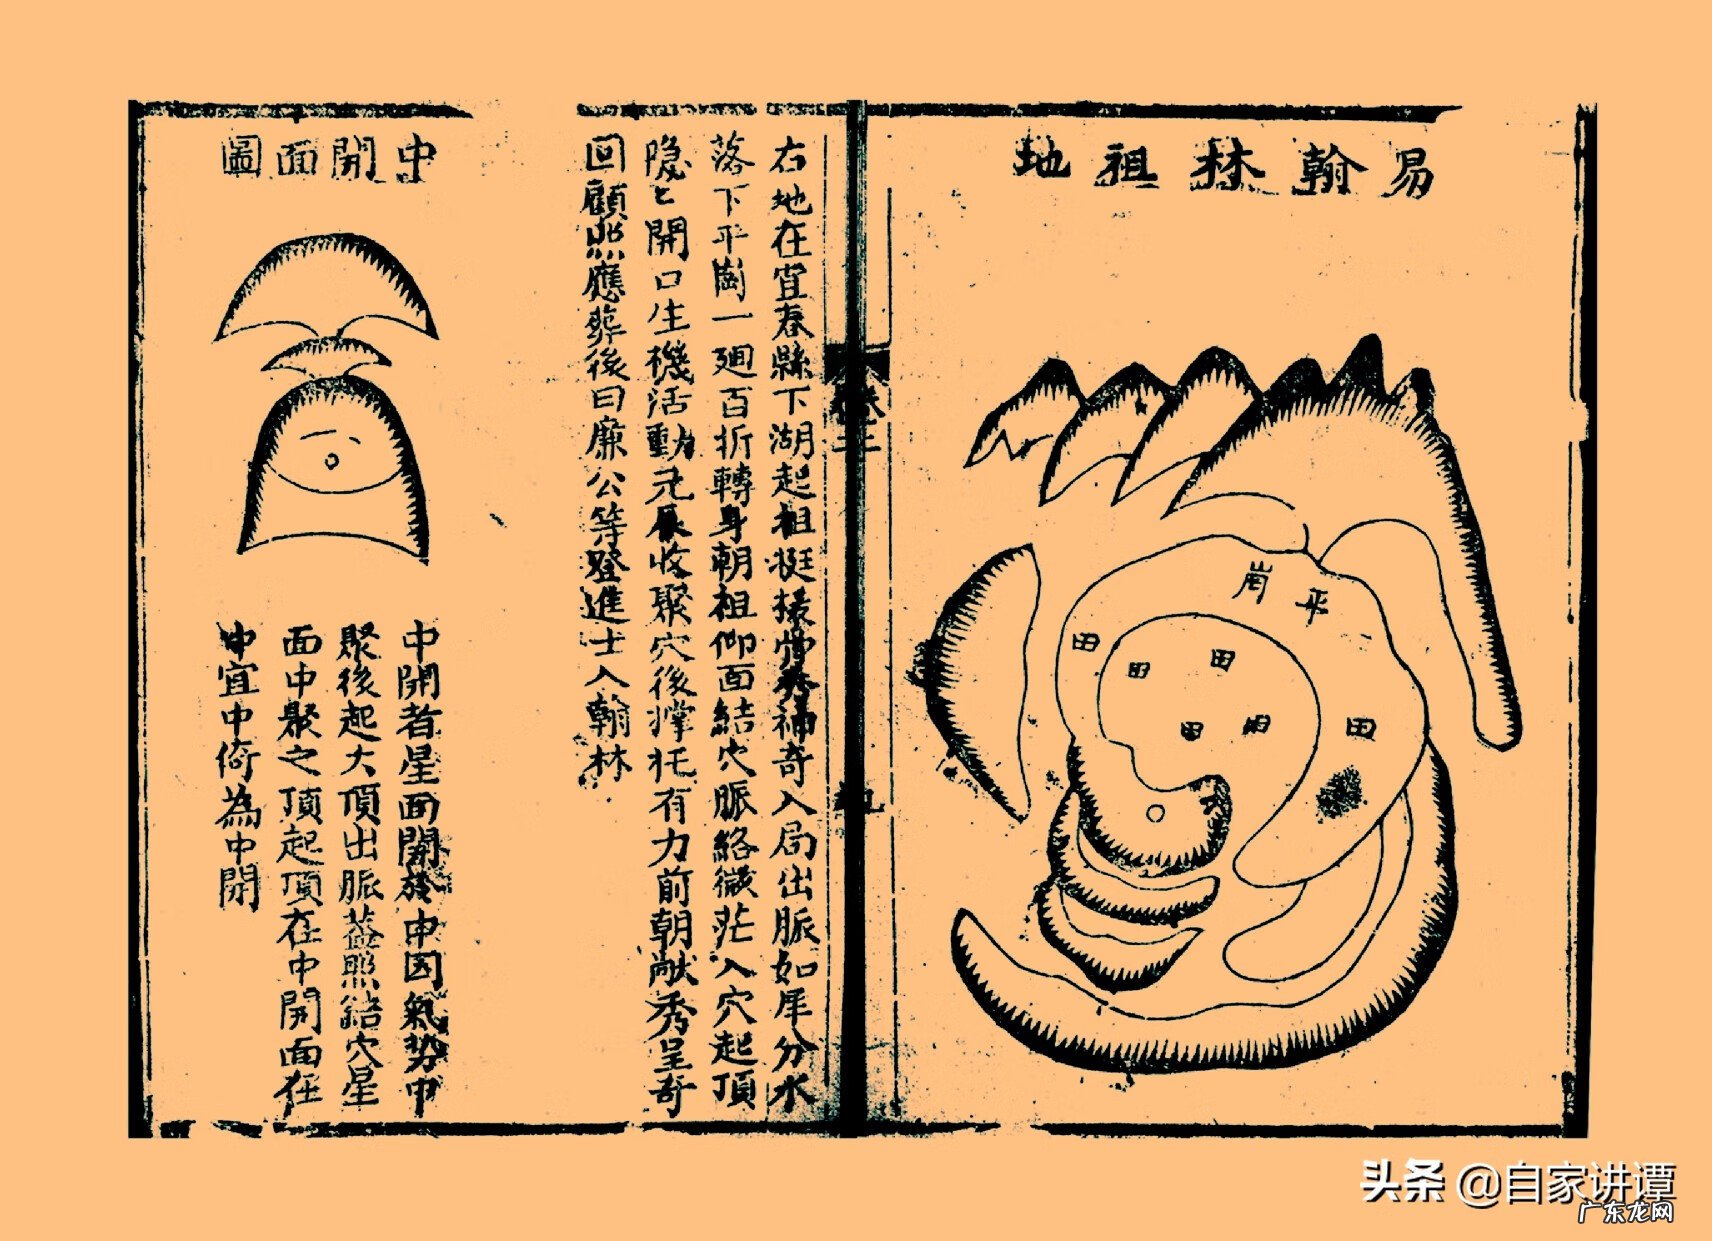 易翰林祖地
平
崗
田
田
田
田
田
田
卷二
九
右地在宜春縣下湖起祖挺援特秀神奇入局出脈如犀分水
落下平崗一廻百折轉身朝祖仰面結穴脈絡微茫入穴起頂
隐々開口生機活動元辰收聚穴後撑托有力前朝献秀呈奇
回顧照應葬後曰廉公等登進士入翰林
中開面圖
中開者星面開於中因氣势中
聚後起大頂出脈蓋照結穴星
面中聚之頂起頂在中開面在
中宜中倚為中開
头条 @自家讲谭
广东龙网